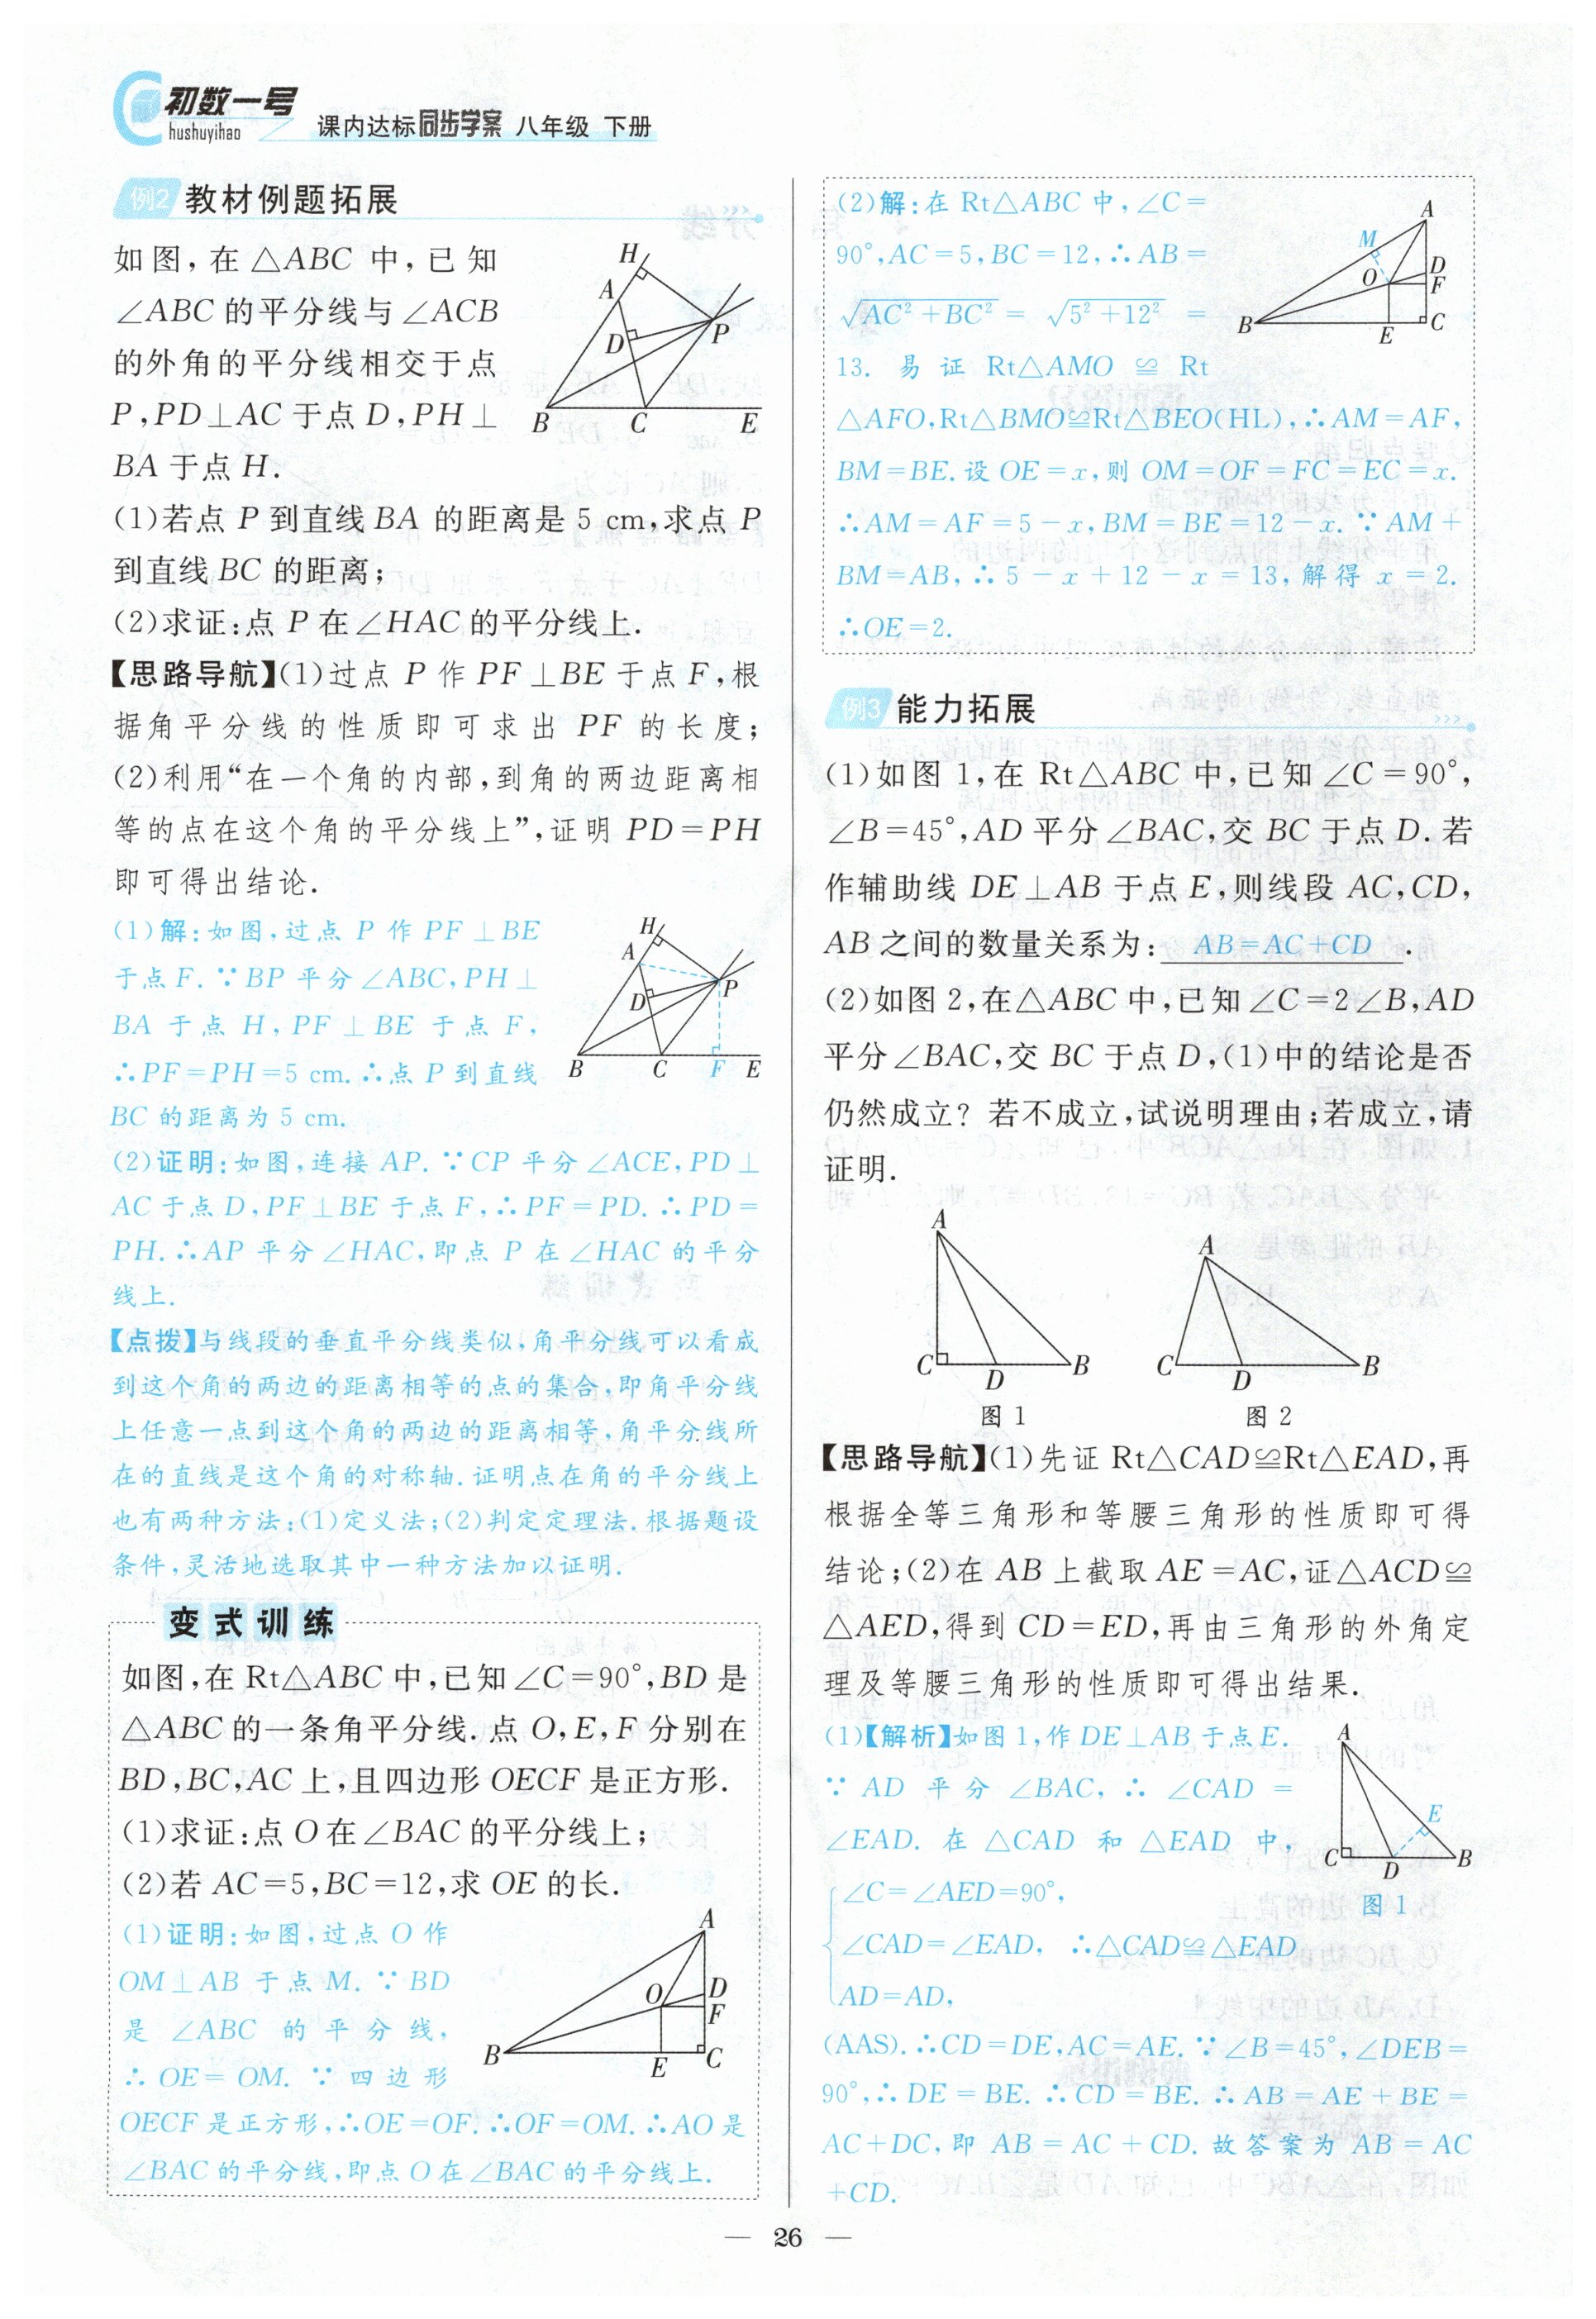 初数一号
hushuyihao
课内达标同步学案 八年级 下册
例2 教材例题拓展
如图,在 △ABC 中,已知
∠ABC 的平分线与 ∠ACB
的外角的平分线相交于点
P,PD⊥AC 于点 D,PH⊥
BA 于点 H.
H
A
D
P
B
C
E
(1)若点 P 到直线 BA 的距离是 5 cm,求点 P
到直线 BC 的距离;
(2)求证:点 P 在∠HAC 的平分线上.
【思路导航】(1)过点 P 作 PF⊥BE 于点 F,根
据角平分线的性质即可求出 PF 的长度;
(2)利用“在一个角的内部,到角的两边距离相
等的点在这个角的平分线上”,证明 PD=PH
即可得出结论.
(1)解:如图,过点 P 作 PF⊥BE
于点 F.∵BP 平分∠ABC,PH⊥
BA 于点 H,PF⊥BE 于点 F,
∴PF=PH=5 cm.∴点 P 到直线
BC 的距离为 5 cm.
H
A
D
P
B
C
F
E
(2)证明:如图,连接 AP.∵CP 平分∠ACE,PD⊥
AC 于点 D,PF⊥BE 于点 F,∴PF=PD.∴PD=
PH.∴AP 平分∠HAC,即点 P 在∠HAC 的平分
线上.
【点拨】与线段的垂直平分线类似,角平分线可以看成
到这个角的两边的距离相等的点的集合,即角平分线
上任意一点到这个角的两边的距离相等,角平分线所
在的直线是这个角的对称轴.证明点在角的平分线上
也有两种方法:(1)定义法;(2)判定定理法.根据题设
条件,灵活地选取其中一种方法加以证明.
变式训练
如图,在 Rt△ABC 中,已知∠C=90°,BD 是
△ABC 的一条角平分线.点 O,E,F 分别在
BD,BC,AC 上,且四边形 OECF 是正方形.
(1)求证:点 O 在∠BAC 的平分线上;
(2)若 AC=5,BC=12,求 OE 的长.
(1)证明:如图,过点 O 作
OM⊥AB 于点 M.∵BD
是 ∠ABC 的平分线,
∴OE=OM.∵四边形
A
O
D
F
B
E
C
OECF 是正方形,∴OE=OF.∴OF=OM.∴AO 是
∠BAC 的平分线,即点 O 在∠BAC 的平分线上.
(2)解:在 Rt△ABC 中,∠C=
90°,AC=5,BC=12,∴AB=
√AC²+BC² = √5²+12² =
13. 易证 Rt△AMO≌Rt
A
M
O
D
F
B
E
C
△AFO,Rt△BMO≌Rt△BEO(HL),∴AM=AF,
BM=BE.设 OE=x,则 OM=OF=FC=EC=x.
∴AM=AF=5-x,BM=BE=12-x.∵AM+
BM=AB,∴5-x+12-x=13,解得 x=2.
∴OE=2.
例3 能力拓展
(1)如图 1,在 Rt△ABC 中,已知∠C=90°,
∠B=45°,AD 平分∠BAC,交 BC 于点 D.若
作辅助线 DE⊥AB 于点 E,则线段 AC,CD,
AB 之间的数量关系为: AB=AC+CD .
(2)如图 2,在△ABC 中,已知∠C=2∠B,AD
平分∠BAC,交 BC 于点 D,(1)中的结论是否
仍然成立?若不成立,试说明理由;若成立,请
证明.
A
C
D
B
图 1
A
C
D
B
图 2
【思路导航】(1)先证 Rt△CAD≌Rt△EAD,再
根据全等三角形和等腰三角形的性质即可得
结论;(2)在 AB 上截取 AE=AC,证△ACD≌
△AED,得到 CD=ED,再由三角形的外角定
理及等腰三角形的性质即可得出结果.
(1)【解析】如图 1,作 DE⊥AB 于点 E.
∵ AD 平分 ∠BAC,∴ ∠CAD =
∠EAD. 在 △CAD 和 △EAD 中,
∠C=∠AED=90°,
∠CAD=∠EAD, ∴△CAD≌△EAD
AD=AD,
A
E
C
D
B
图 1
(AAS).∴CD=DE,AC=AE.∵∠B=45°,∠DEB=
90°,∴DE=BE.∴CD=BE.∴AB=AE+BE=
AC+DC,即 AB=AC+CD.故答案为 AB=AC
+CD.
— 26 —